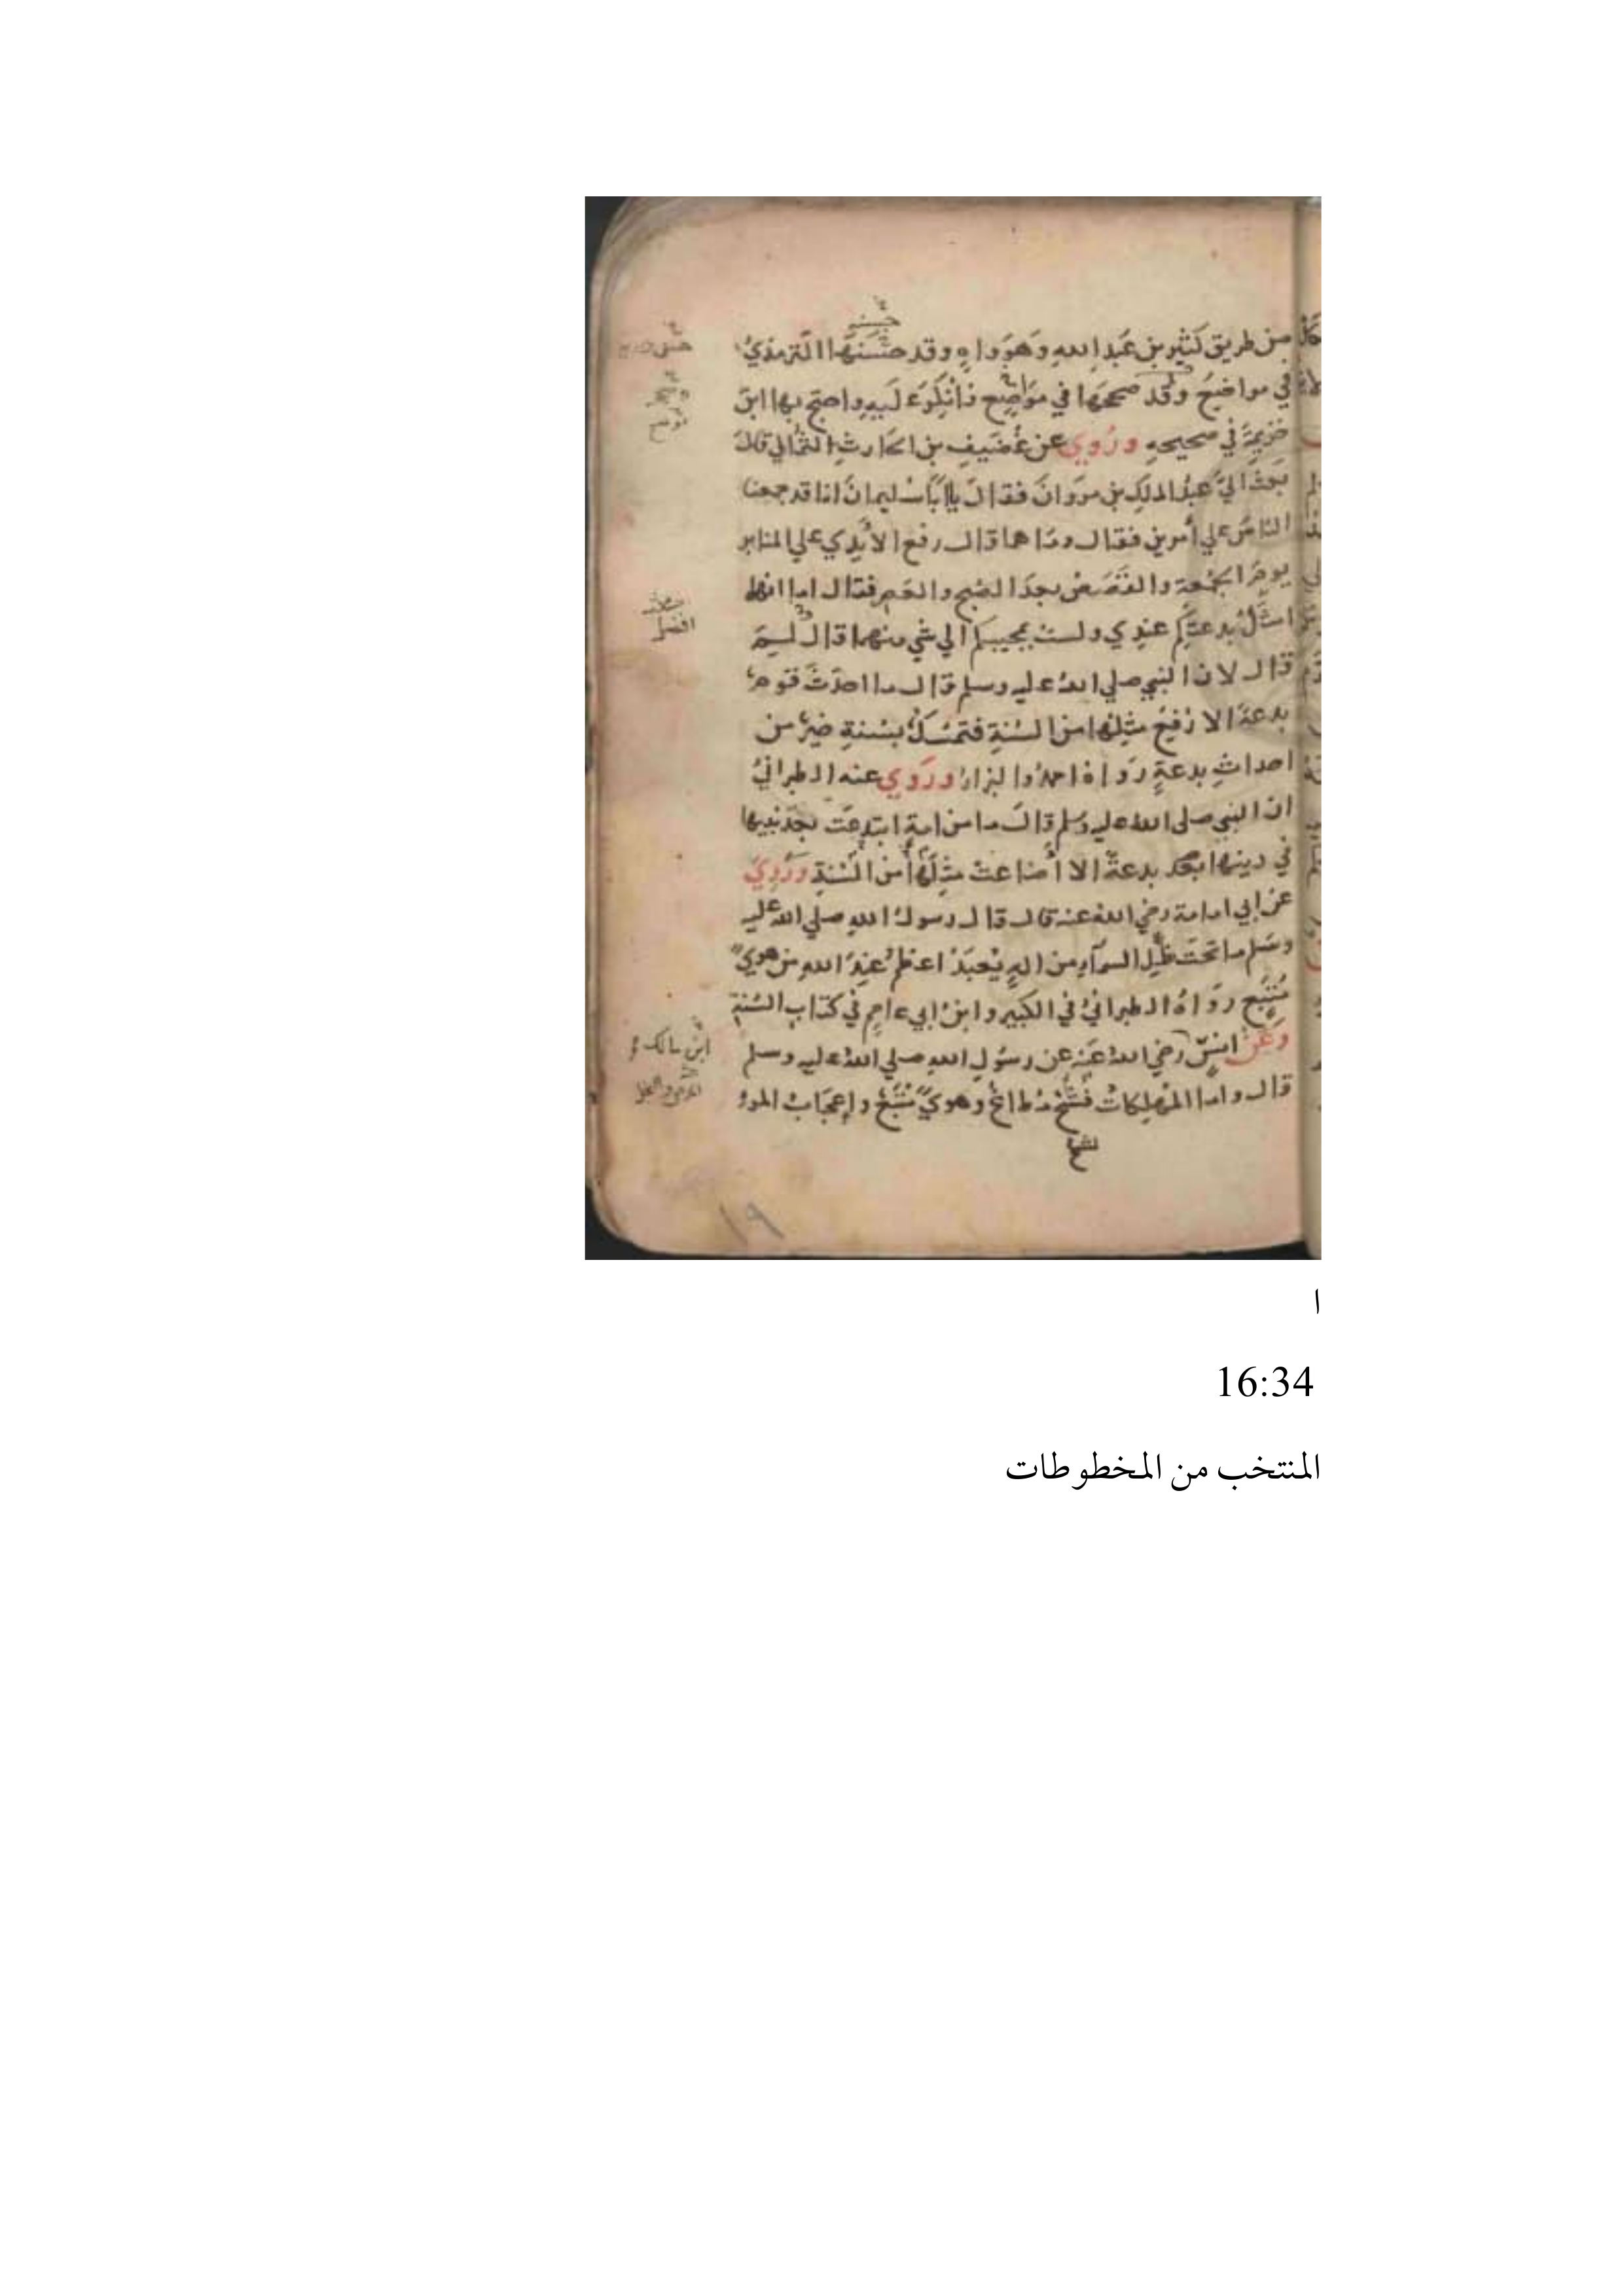 من طريق كثير بن عبد الله وهو واه وقد حسنها الترمذي
في مواضع وقد صححها في مواضع فانكر عليه واحتج بها ابن
خزيمة في صحيحه وروي عن غضيف بن الحارث الثمالي قال
بعث الي عبد الملك بن مروان فقال يا ابا سليمان انا قد جمعنا
الناس علي أمرين فقال وما هما قال رفع الأيدي علي المنابر
يوم الجمعة والقصص بعد الصبح والعصر فقال اما انهما
امثل بدعتكم عندي ولست بمجيبكم الي شي منهما قال لم
قال لان النبي صلي الله عليه وسلم قال ما احدث قوم
بدعة الا رفع مثلها من السنة فتمسك بسنة خير من
احداث بدعة رواه احمد والبزار وروي عنه الطبراني
ان النبي صلى الله عليه وسلم قال ما من امة ابتدعت بعد نبيها
في دينها بدعة الا أضاعت مثلها من السنة وروي
عن ابي امامة رضي الله عنه قال قال رسول الله صلي الله عليه
وسلم ما تحت ظل السمآء من اله يعبد اعظم عند الله من هوي
متبع رواه الطبراني في الكبير وابن ابي عاصم في كتاب السنة
وعن انس رضي الله عنه عن رسول الله صلي الله عليه وسلم
ابن مالك
قال واما المهلكات فشح مطاع وهوي متبع واعجاب المرء
افضل
١٩
ا
16:34
المنتخب من المخطوطات